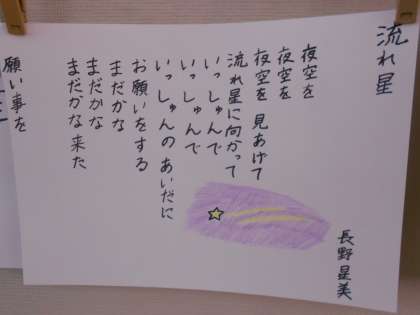 流れ星
長野星美
夜空を
夜空を
夜空を見あげて
流れ星に向かって
いっしゅんで
いっしゅんで
いっしゅんのあいだに
お願いをする
まだかな
まだかな
まだかな来た
願い事を